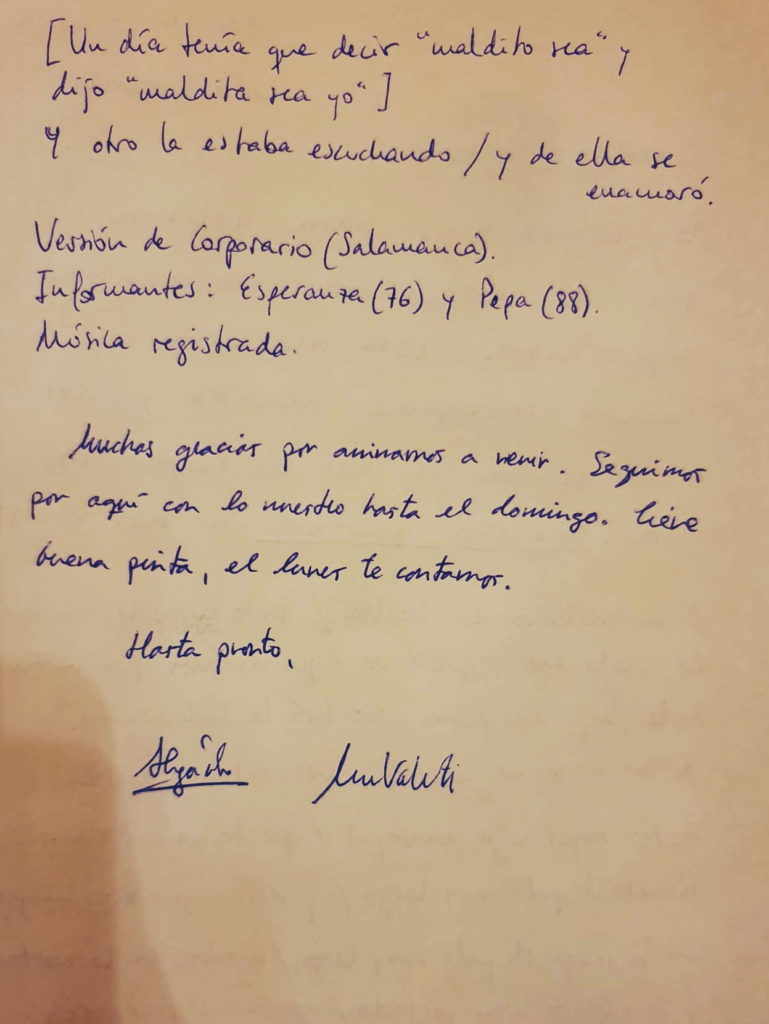 [Un día tenía que decir "maldito sea" y
dijo "maldita sea yo"]
Y otro la estaba escuchando / y de ella se
enamoró.
Versión de Corporario (Salamanca).
Informantes: Esperanza (76) y Pepa (88).
Música registrada.
Muchas gracias por animarnos a venir. Seguimos
por aquí con lo nuestro hasta el domingo. Tiene
buena pinta, el lunes te contamos.
Hasta pronto,